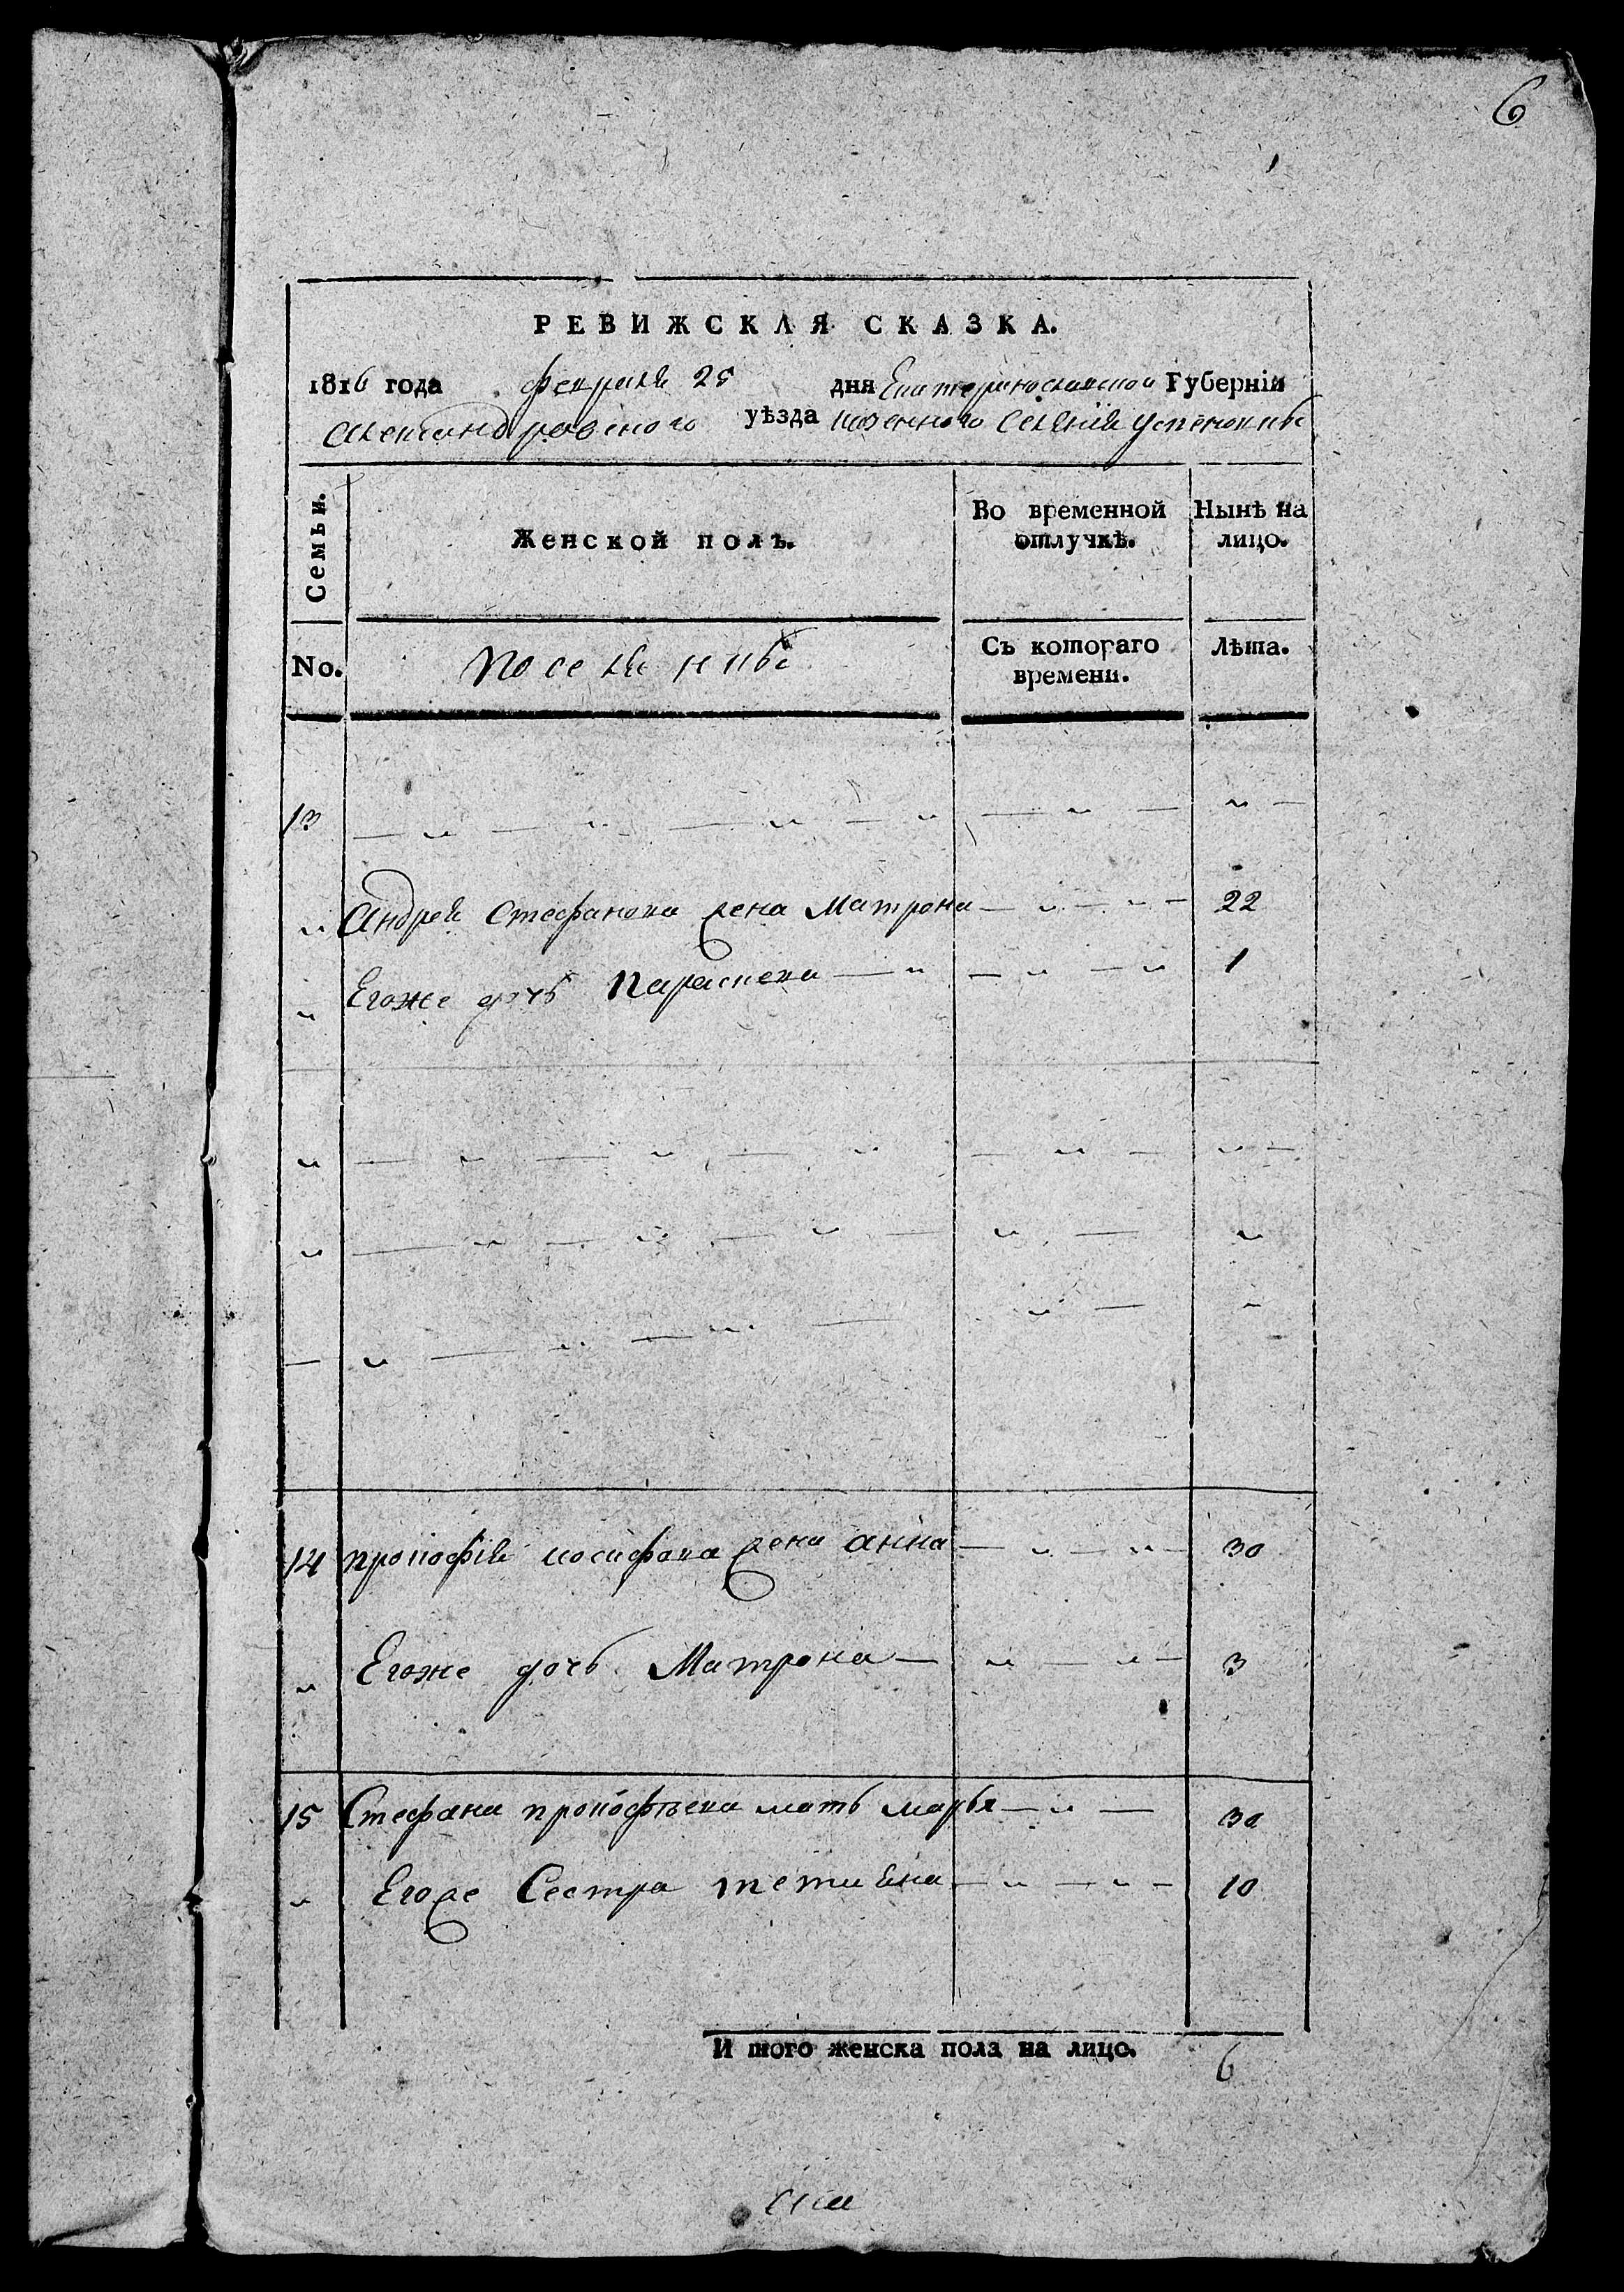 6
РЕВИЖСКАЯ СКАЗКА.
1816 года февраля 25 дня Екатеринославской Губернiи
Александровского уѣзда казенного Селенiя Успеновки
Семьи. Женской полъ. Во временной отлучкѣ. Нынѣ на лицо.
No. Поселянки Съ котораго времени. Лѣта.
13 — „ — „ — „ — „ — „ — „ —
„ Андрея Стефанова жена Матрона — „ — „ — 22
„ Егоже дочь Параскева — „ — „ — „ 1
„ — „ — „ — „ — „ — „ —
„ — „ — „ — „ — „ — „
— „ — „ — „ — „ — „
14 прокофiя иосифова жена анна — „ — „ — 30
„ Егоже дочь Матрона — „ — „ — 3
15 Стефана прокофьева мать марья — „ — 30
„ Егоже Сестра татияна — „ — „ — 10
И того женска пола на лицо. 6